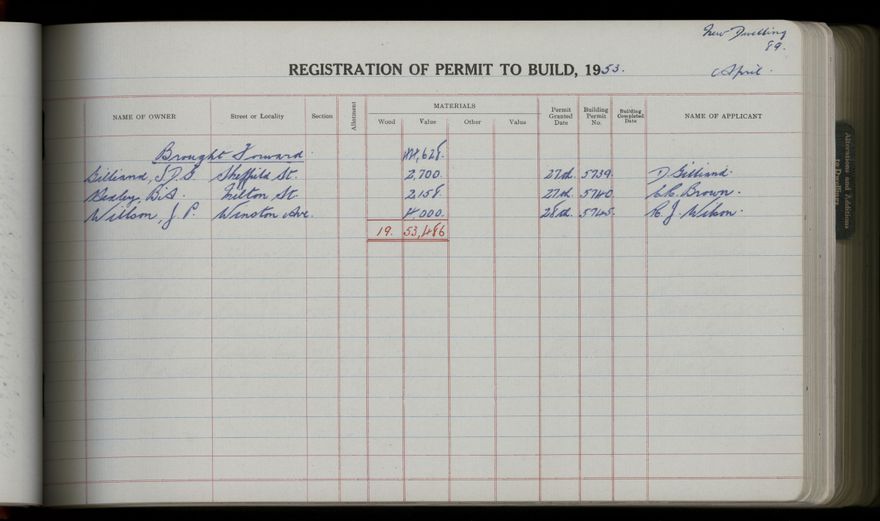 New Dwelling
89.
REGISTRATION OF PERMIT TO BUILD, 1953. April.
NAME OF OWNER Street or Locality Section Allotment MATERIALS Wood Value Other Value Permit Granted Date Building Permit No. Building Completed Date NAME OF APPLICANT
Brought Forward 44,628.
Gilliand, J.D.G. Sheffield St. 2,700. 27th. 5739. D. Gilliand.
Bexley, B.A. Milton St. 2158. 27th. 5740. Brown.
Willson, J. P. Winston Ave. 4000. 28th. 5745. J. Wilson.
19. 53,486
Alterations and Additions
to Dwellings